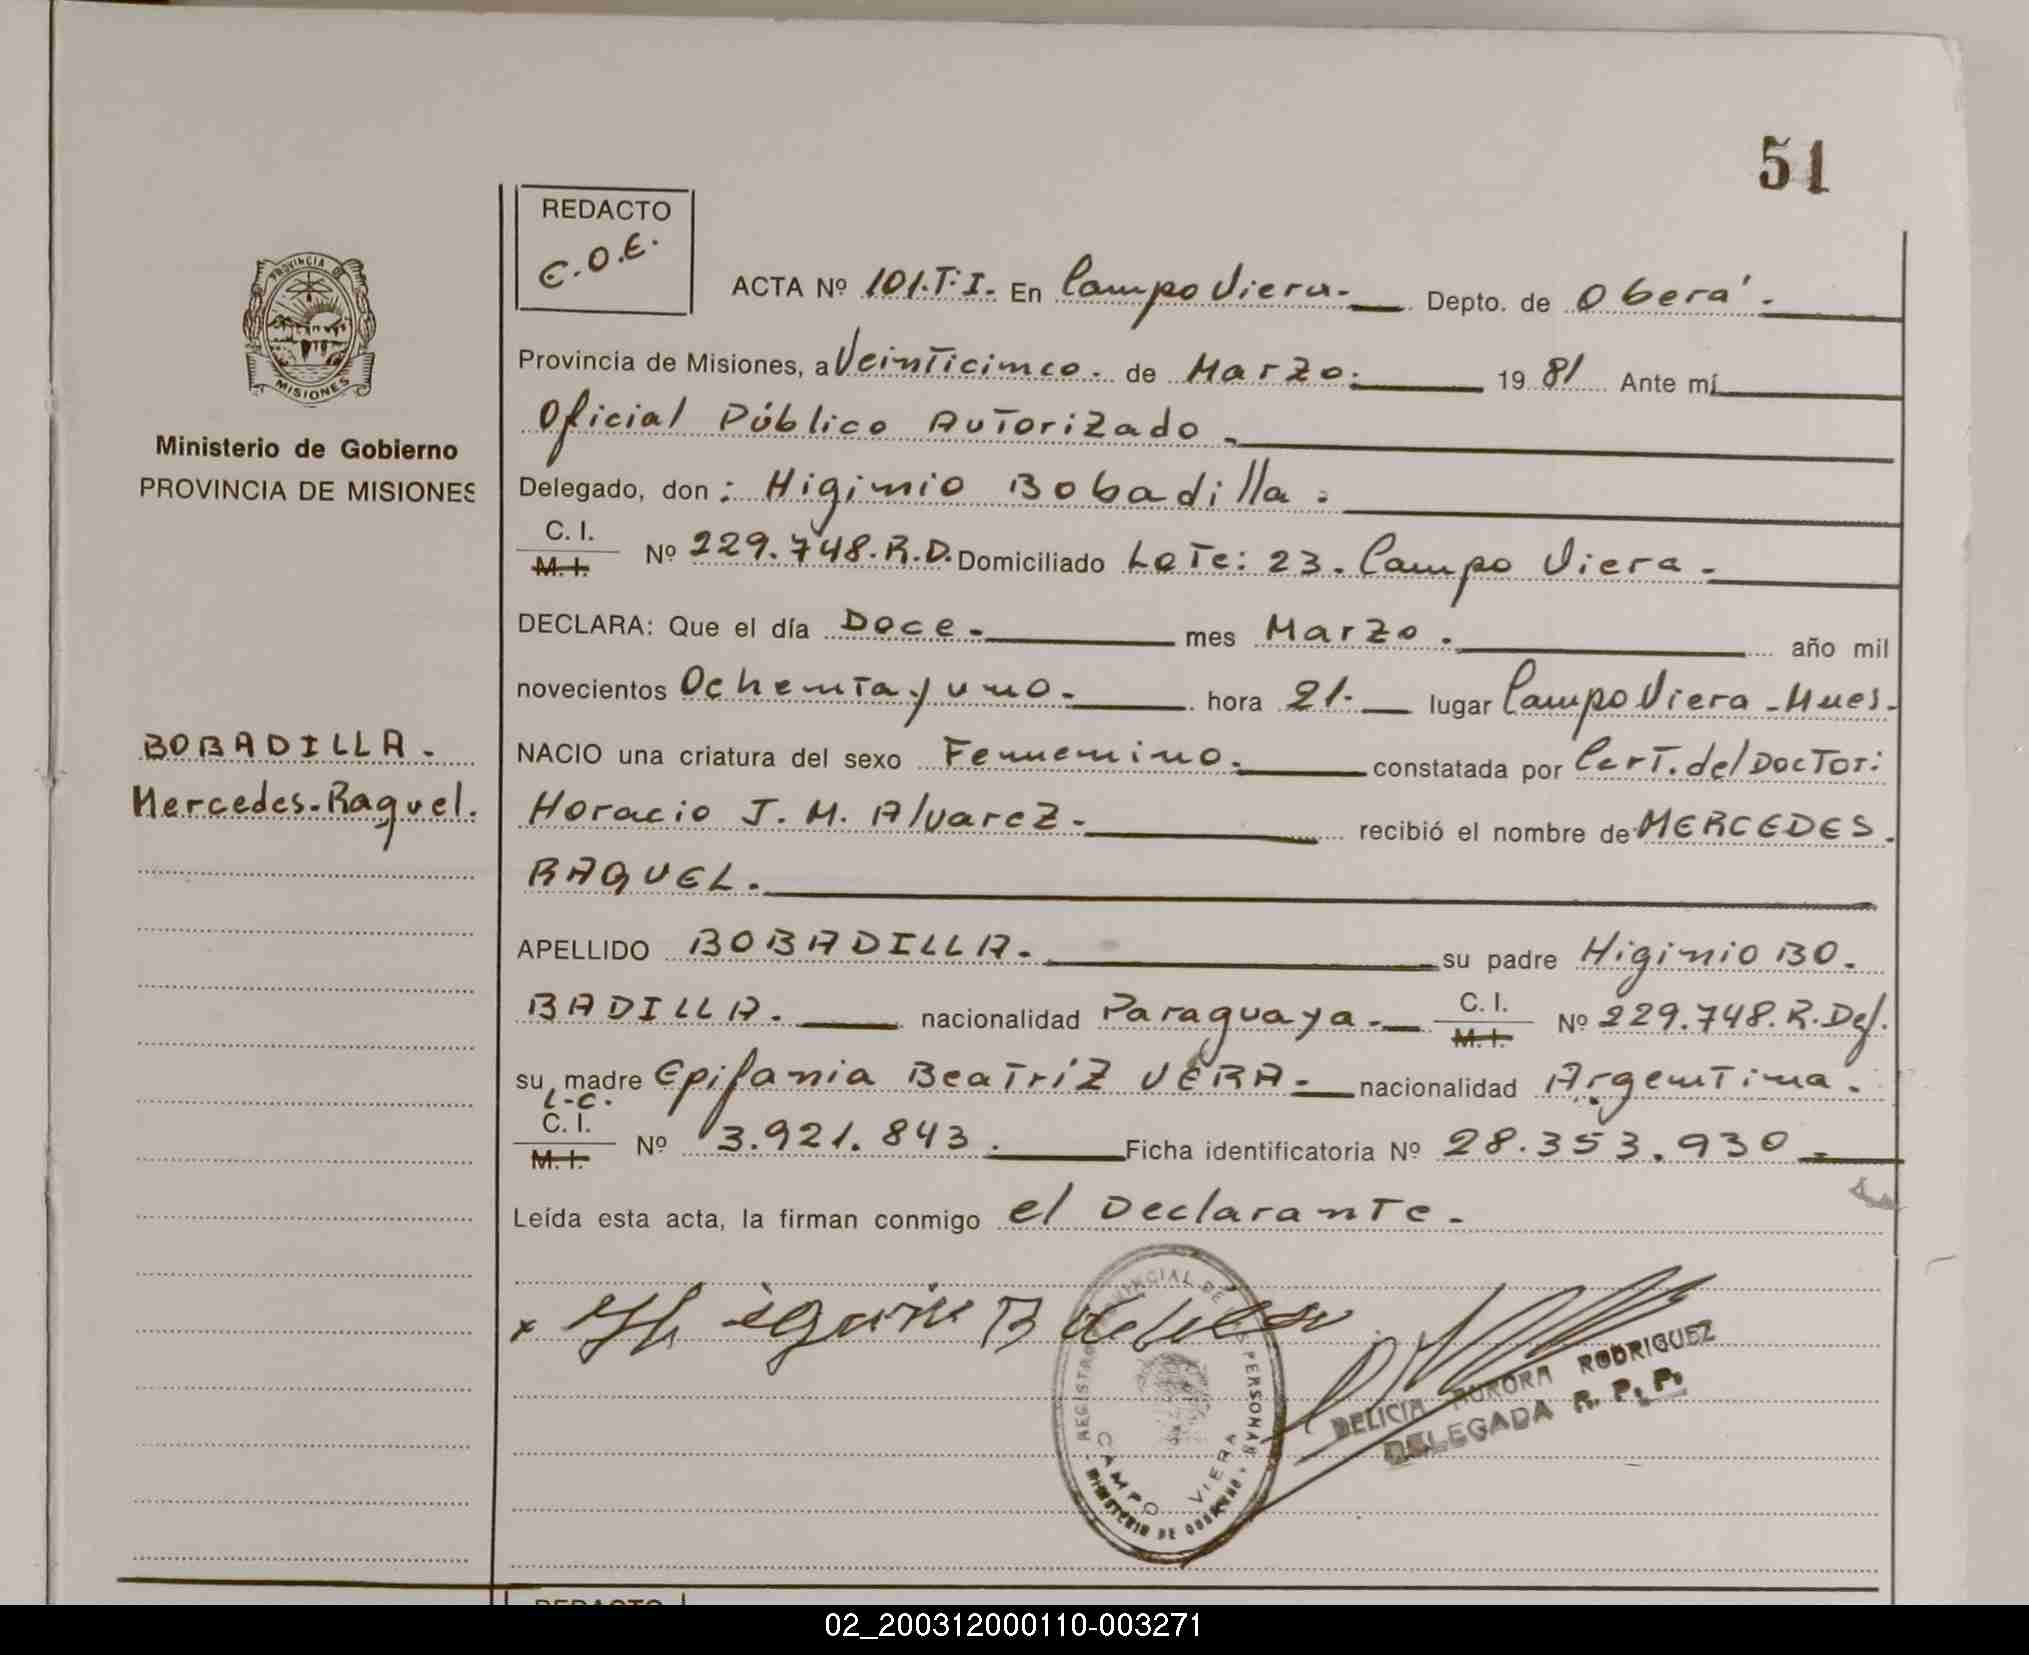 51
REDACTO
C.O.E.
ACTA Nº 101.T.I. En Campo Viera. Depto. de Oberá.
Provincia de Misiones, a Veinticinco. de Marzo. 19 81 Ante mí
Oficial Público Autorizado.
Delegado, don: Higinio Bobadilla.
C. I.
M. I.
Nº 229.748.R.D. Domiciliado Lote: 23. Campo Viera.
DECLARA: Que el día Doce. mes Marzo. año mil
novecientos Ochenta y uno. hora 21. lugar Campo Viera - Mnes.
NACIO una criatura del sexo Femenino. constatada por Cert. del Doctor:
Horacio J. M. Alvarez. recibió el nombre de MERCEDES.
RAQUEL.
APELLIDO BOBADILLA. su padre Higinio BO.
BADILLA. nacionalidad Paraguaya. C. I.
M. I.
Nº 229.748.R.Def.
su madre Epifania Beatríz VERA. nacionalidad Argentina.
L.C.
C. I.
M. I.
Nº 3.921.843. Ficha identificatoria Nº 28.353.930.
Leída esta acta, la firman conmigo el Declarante.
PROVINCIA DE
MISIONES
Ministerio de Gobierno
PROVINCIA DE MISIONES
BOBADILLA.
Mercedes.Raquel.
x Higinio Bobadilla
REGISTRO PROVINCIAL DE LAS PERSONAS
CAMPO VIERA
MINISTERIO DE GOBIERNO
DELICIA AURORA RODRIGUEZ
DELEGADA R. P. P.
REDACTO
02_200312000110-003271